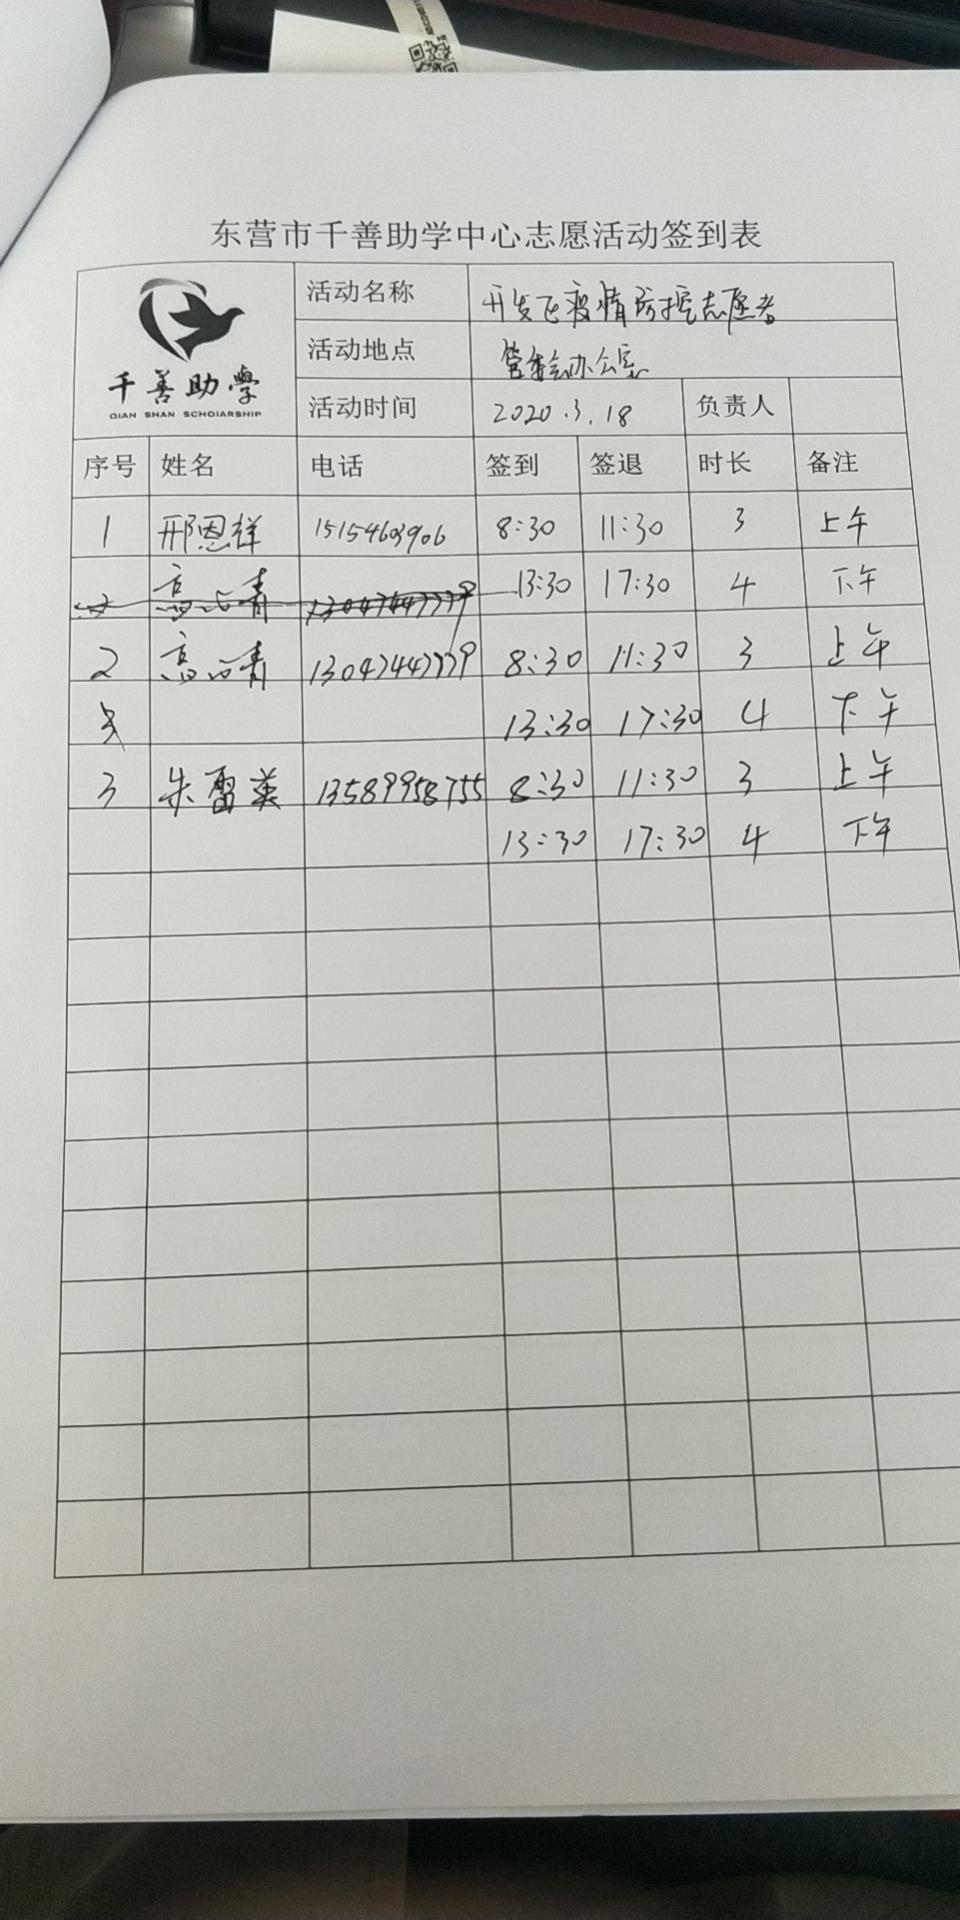 东营市千善助学中心志愿活动签到表
千善助學
QIAN SHAN SCHOLARSHIP
活动名称 开发区疫情防控志愿者
活动地点 管委会办公室
活动时间 2020.3.18 负责人
序号 姓名 电话 签到 签退 时长 备注
1 邢恩祥 15154603906 8:30 11:30 3 上午
13:30 17:30 4 下午
2 高 青 13047447779 8:30 11:30 3 上午
13:30 17:30 4 下午
3 朱雷英 13589958755 8:30 11:30 3 上午
13:30 17:30 4 下午